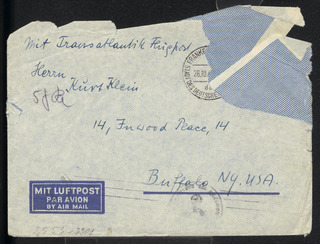 Mit Transatlantik Flugpost
Herrn
Kurt Klein
14, Inwood Place, 14
Buffalo NY. USA.
MIT LUFTPOST
PAR AVION
BY AIR MAIL